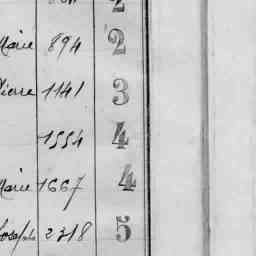 2
Marie 894 2
Pierre 1141 3
1554 4
Marie 1667 4
Joseph 2318 5